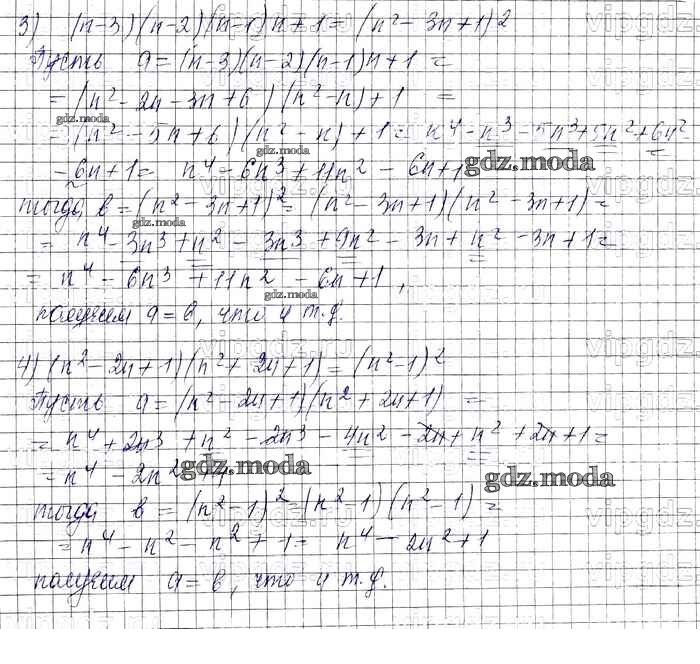 3) (n-3)(n-2)(n-1)n+1=(n²-3n+1)²
Пусть a=(n-3)(n-2)(n-1)n+1=
=(n²-2n-3n+6)(n²-n)+1=
=(n²-5n+6)(n²-n)+1=n⁴-n³-5n³+5n²+6n²
-6n+1=n⁴-6n³+11n²-6n+1
тогда, в=(n²-3n+1)²=(n²-3n+1)(n²-3n+1)=
=n⁴-3n³+n²-3n³+9n²-3n+n²-3n+1=
=n⁴-6n³+11n²-6n+1,
получим a=в, что и т.д.
4) (n²-2n+1)(n²+2n+1)=(n²-1)²
Пусть a=(n²-2n+1)(n²+2n+1)=
=n⁴+2n³+n²-2n³-4n²-2n+n²+2n+1=
=n⁴-2n²+1
тогда в=(n²-1)²=(n²-1)(n²-1)=
=n⁴-n²-n²+1=n⁴-2n²+1
получим a=в, что и т.д.
gdz.moda
gdz.moda
gdz.moda
gdz.moda
gdz.moda
gdz.moda
gdz.moda
vipgdz.ru